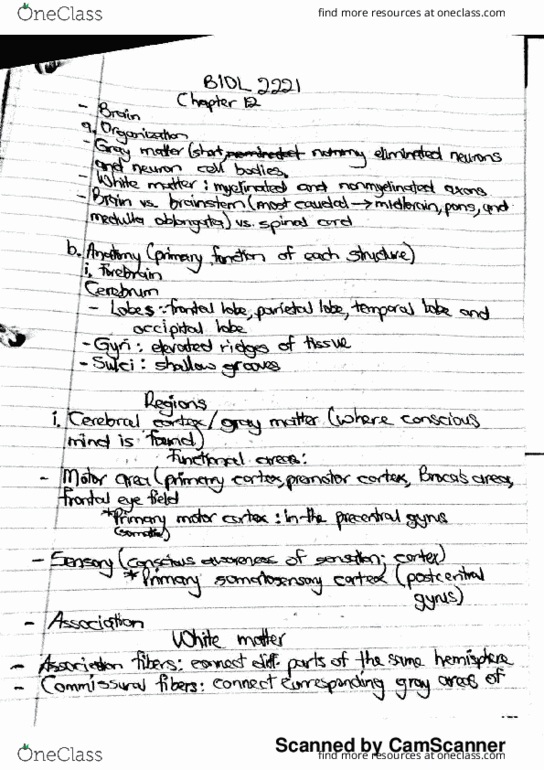 OneClass
find more resources at oneclass.com
BIOL 2221
Chapter 12
- Brain
a. Organization
- Gray matter (short, nonmy eliminated neurons
and neuron cell bodies.
- White matter : myelinated and nonmyelinated axons
- Brain vs. brainstem (most caudal → midbrain, pons, and
medulla oblongata) vs. spinal cord
b. Anatomy (primary function of each structure)
i. Forebrain
Cerebrum
- Lobes : frontal lobe, parietal lobe, temporal lobe and
occipital lobe
- Gyri : elevated ridges of tissue
- Sulci : shallow grooves
Regions
i. Cerebral cortex / gray matter (where conscious
mind is found)
Functional areas:
- Motor area (primary cortex, premotor cortex, Broca's area,
frontal eye field
*Primary motor cortex : in the precentral gyrus
(somatic)
- Sensory (conscious awareness of sensation: cortex)
*Primary somatosensory cortex (postcentral
gyrus)
- Association
White matter
- Association fibers: connect diff. parts of the same hemisphere
- Commissural fibers: connect corresponding gray areas of
Scanned by CamScanner
OneClass
find more resources at oneclass.com